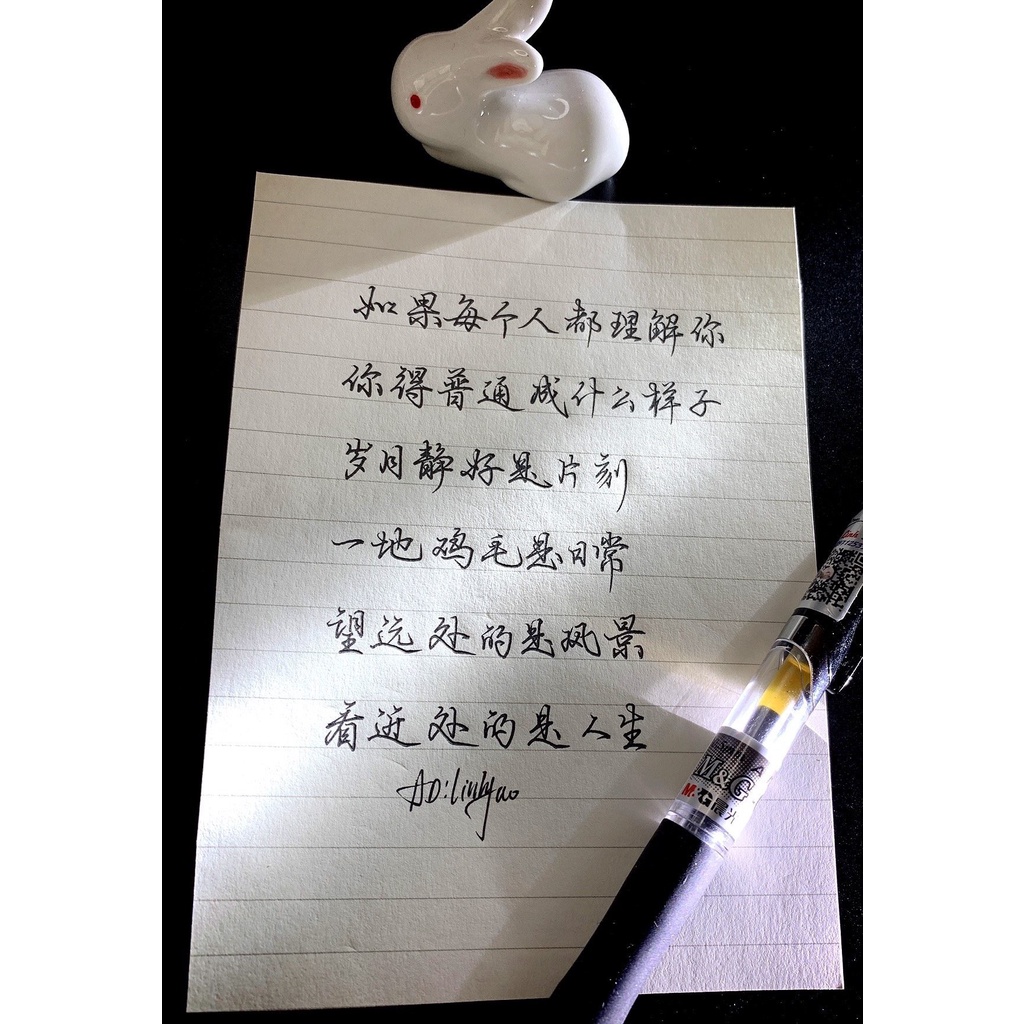 如果每个人都理解你
你得普通成什么样子
岁月静好是片刻
一地鸡毛是日常
望远处的是风景
看近处的是人生
M&G
M&G晨光